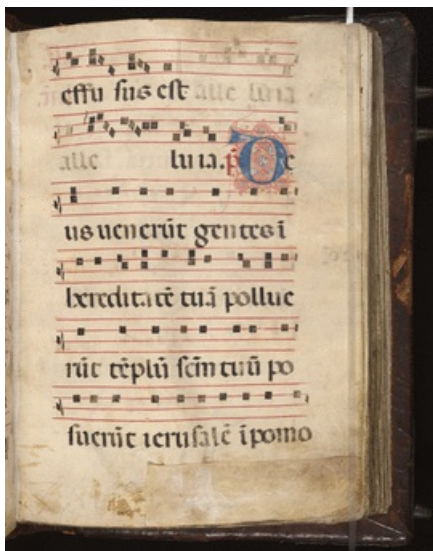 effu sus est alle lu ia
alle lu ia. p̄ De
us uenerūt gentes ī
heredita tē tuā pollue
rūt tēplū scm̄ tuū po
suerūt ierusalē ī pomo